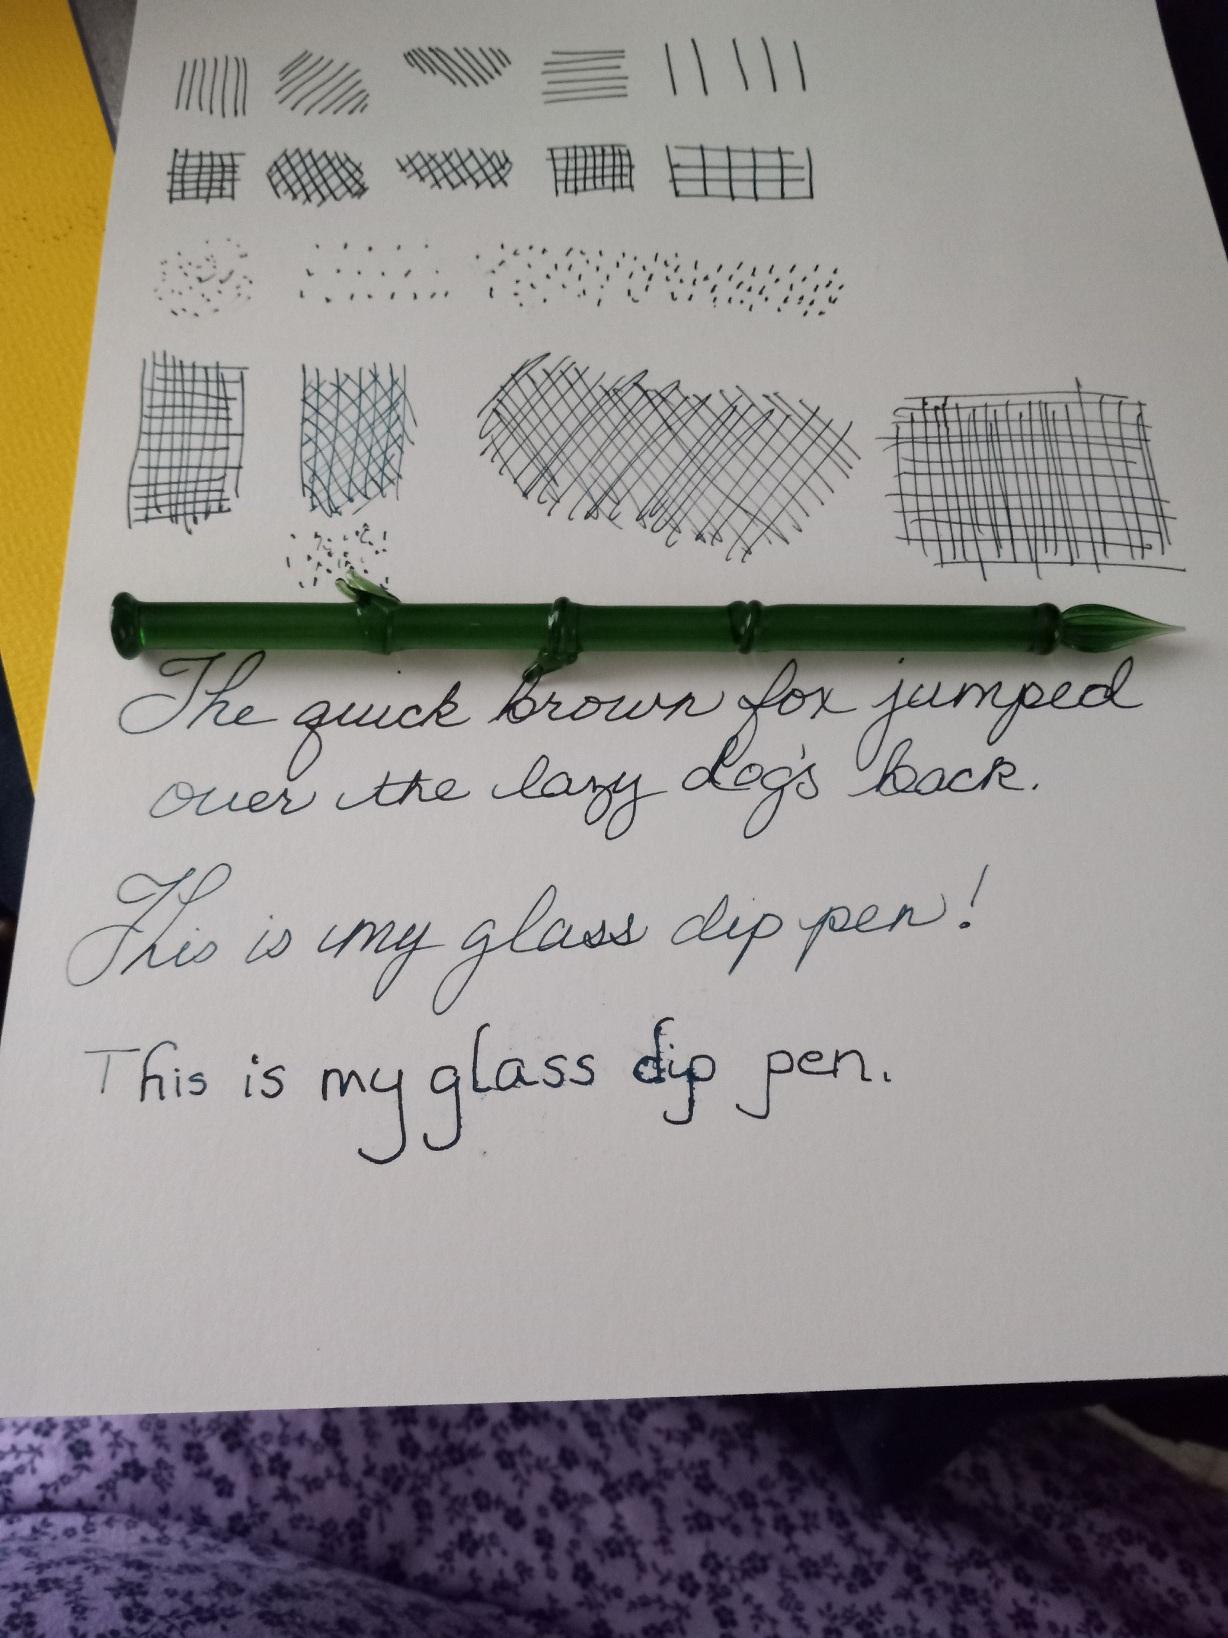 The quick brown fox jumped
over the lazy dog's back.
This is my glass dip pen!
This is my glass dip pen.